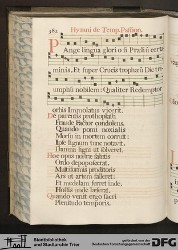 382 Hymni de Temp. Passion.
PAnge lingua glorio si Prælii certa-
minis, Et super Crucis trophæū Dic tri-
umphū nobilem: Qualiter Redemptor
orbis Immolatus vicerit.
De parentis protoplasti
Fraude Factor condolens,
Quando pomi noxialis
Morsu in mortem corruit:
Ipse lignum tunc notavit,
Damna ligni ut solveret.
Hoc opus nostræ salutis
Ordo depoposcerat,
Multiformis proditoris
Ars ut artem falleret:
Et medelam ferret inde,
Hostis unde læserat.
Quando venit ergo sacri
Plenitudo temporis,
Stadtbibliothek
und Stadtarchiv Trier
gefördert von der
Deutschen Forschungsgemeinschaft
DFG